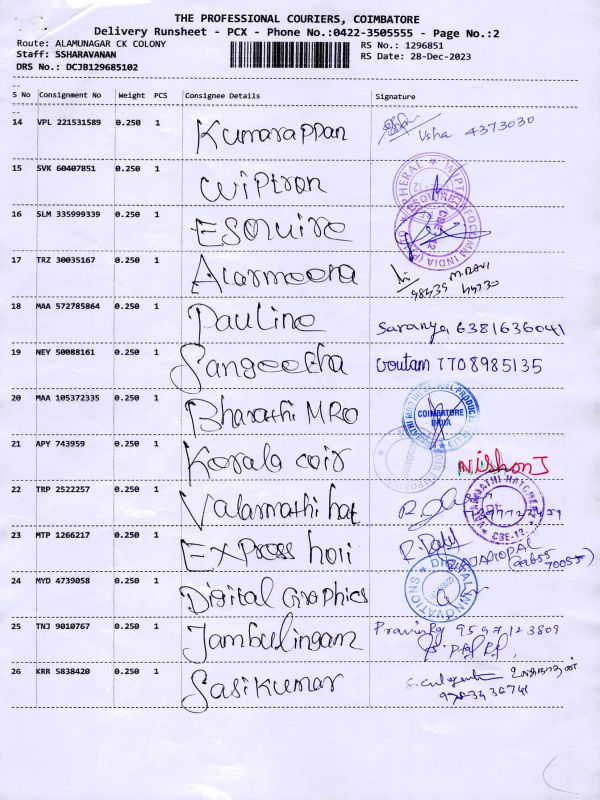 THE PROFESSIONAL COURIERS, COIMBATORE
Delivery Runsheet - PCX - Phone No.:0422-3505555 - Page No.:2
Route: ALAMUNAGAR CK COLONY RS No.: 1296851
Staff: SSHARAVANAN RS Date: 28-Dec-2023
DRS No.: DCJB129685102
S No Consignment No Weight PCS Consignee Details Signature
14 VPL 221531589 0.250 1 Kumarappan Usha 4373030
15 SVK 60407851 0.250 1 Wiptron
16 SLM 335999339 0.250 1 ESquire
17 TRZ 30035167 0.250 1 M.RAVI
18 MAA 572785864 0.250 1 Pauline Saranya 6381636041
19 NEY 50088161 0.250 1 Sangeetha Goutam 7708985135
20 MAA 105372335 0.250 1 Bharathi MRO COIMBATORE INDIA
21 APY 743959 0.250 1 Kerala coir Nishon J
22 TRP 2522257 0.250 1 Valarmathi hat
23 MTP 1266217 0.250 1 EXPress hori RAJAGOPAL
24 MYD 4739058 0.250 1 Digital Graphics
25 TNJ 9010767 0.250 1 Jambulingam 9597123809
26 KRR 5838420 0.250 1 Sasikumar